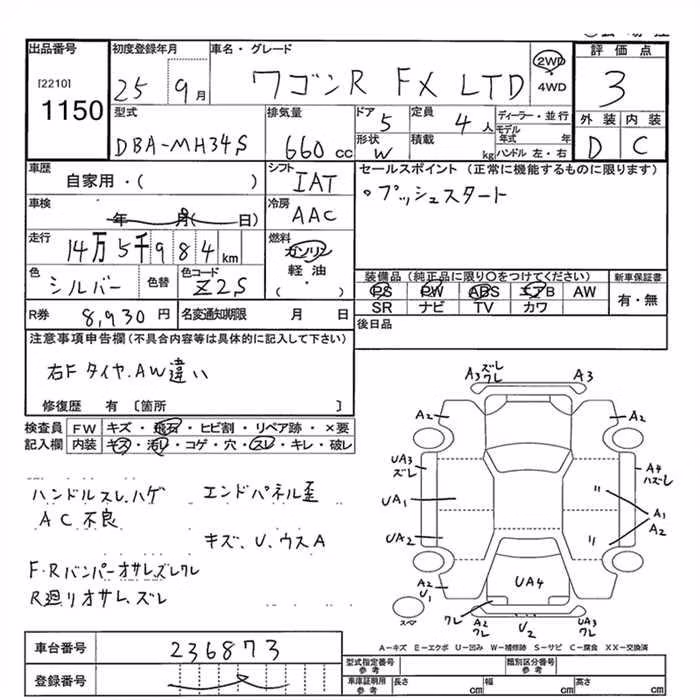 出品番号 初度登録年月 車名・グレード 評価点
[2210] 25 9月 ワゴンR FX LTD 2WD 3
1150 4WD
型式 排気量 ドア 5 定員 4人 ディーラー・並行 外装 内装
モデル年式 年
DBA-MH34S 660cc 形状 W 積載 kg ハンドル 左・右 D C
車歴 シフト セールスポイント (正常に機能するものに限ります)
自家用・( ) IAT ○プッシュスタート
車検 年 月( 日) 冷房 AAC
走行 14万5千984km 燃料 ガソリン
軽油
・( )
色 シルバー 色替 色コード Z2S
装備品 (純正品に限り○をつけてください) 新車保証書
PS PW ABS エアB AW 有・無
SR ナビ TV カワ
R券 8,930円 名変通知期限 月 日 後日品
注意事項申告欄 (不具合内容等は具体的に記入して下さい)
右F タイヤ.AW違い
修復歴 有 [箇所 ]
検査員 FW キズ・飛石・ヒビ割・リペア跡・×要
記入欄 内装 キズ・汚レ・コゲ・穴・スレ・キレ・破レ
ハンドルスレ.ハゲ エンドパネル歪
AC不良
キズ、U、ウスA
F・Rバンパーオサレ.ズレ.ワレ
R廻リオサレ、ズレ
A3 ズレ ワレ A3
A2 A2
UA3 ズレ A4 ハズレ
UA1 〃 A1
A2
UA2 〃
A2 U1 UA4
スペア ワレ A2 ワレ U2 UA3 ワレ
A-キズ E-エクボ U-凹み W-補修跡 S-サビ C-腐食 XX-交換済
車台番号 236873
登録番号
型式指定番号 参考 類別区分番号 参考
車庫証明用 参考 長さ cm 幅 cm 高さ cm